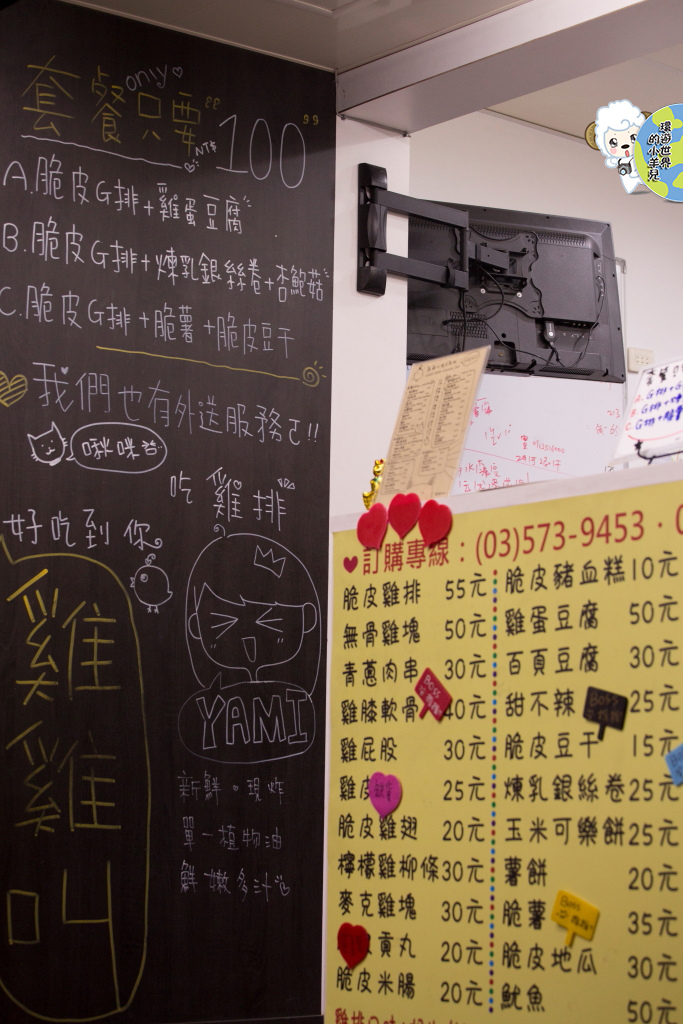 套餐只要 only NT$ "100"
A.脆皮G排+雞蛋豆腐
B.脆皮G排+煉乳銀絲卷+杏鮑菇
C.脆皮G排+脆薯+脆皮豆干
我們也有外送服務ㄛ!!
啾咪
吃雞排
好吃到你
雞雞叫
YAMI
新鮮。現炸
單一植物油
鮮嫩多汁
環遊世界
的小羊兒
訂購專線:(03)573-9453·0
脆皮雞排 55元
無骨雞塊 50元
青蔥肉串 30元
雞膝軟骨 40元
雞屁股 30元
雞皮 25元
脆皮雞翅 20元
檸檬雞柳條 30元
麥克雞塊 30元
貢丸 20元
脆皮米腸 20元
脆皮豬血糕 10元
雞蛋豆腐 50元
百頁豆腐 30元
甜不辣 25元
脆皮豆干 15元
煉乳銀絲卷 25元
玉米可樂餅 25元
薯餅 20元
脆薯 35元
脆皮地瓜 30元
魷魚 50元
Boss
Boss
Boss